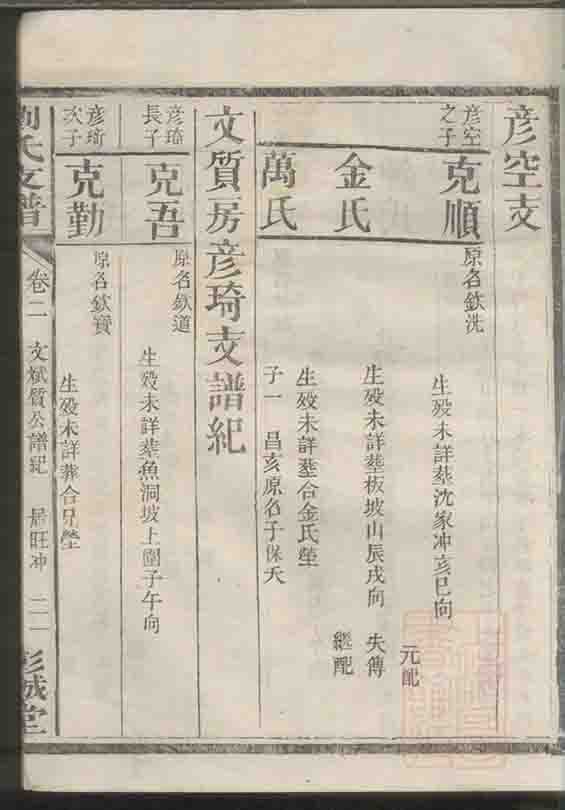 彦空支
彦空之子
克順
原名欽洗
生殁未詳塟沈家冲亥巳向
元配
金氏
生殁未詳塟板坡山辰戌向 失傳
繼配
萬氏
生殁未詳塟合金氏塋
子一 昌亥原名子保夭
文質房彦琦支譜紀
彦琦長子
克吾
原名欽道
生殁未詳塟魚洞坡上圍子午向
彦琦次子
克勤
原名欽寶
生殁未詳葬合兄塋
劉氏支譜 卷二 文斌質公譜紀 旺冲 彭城堂